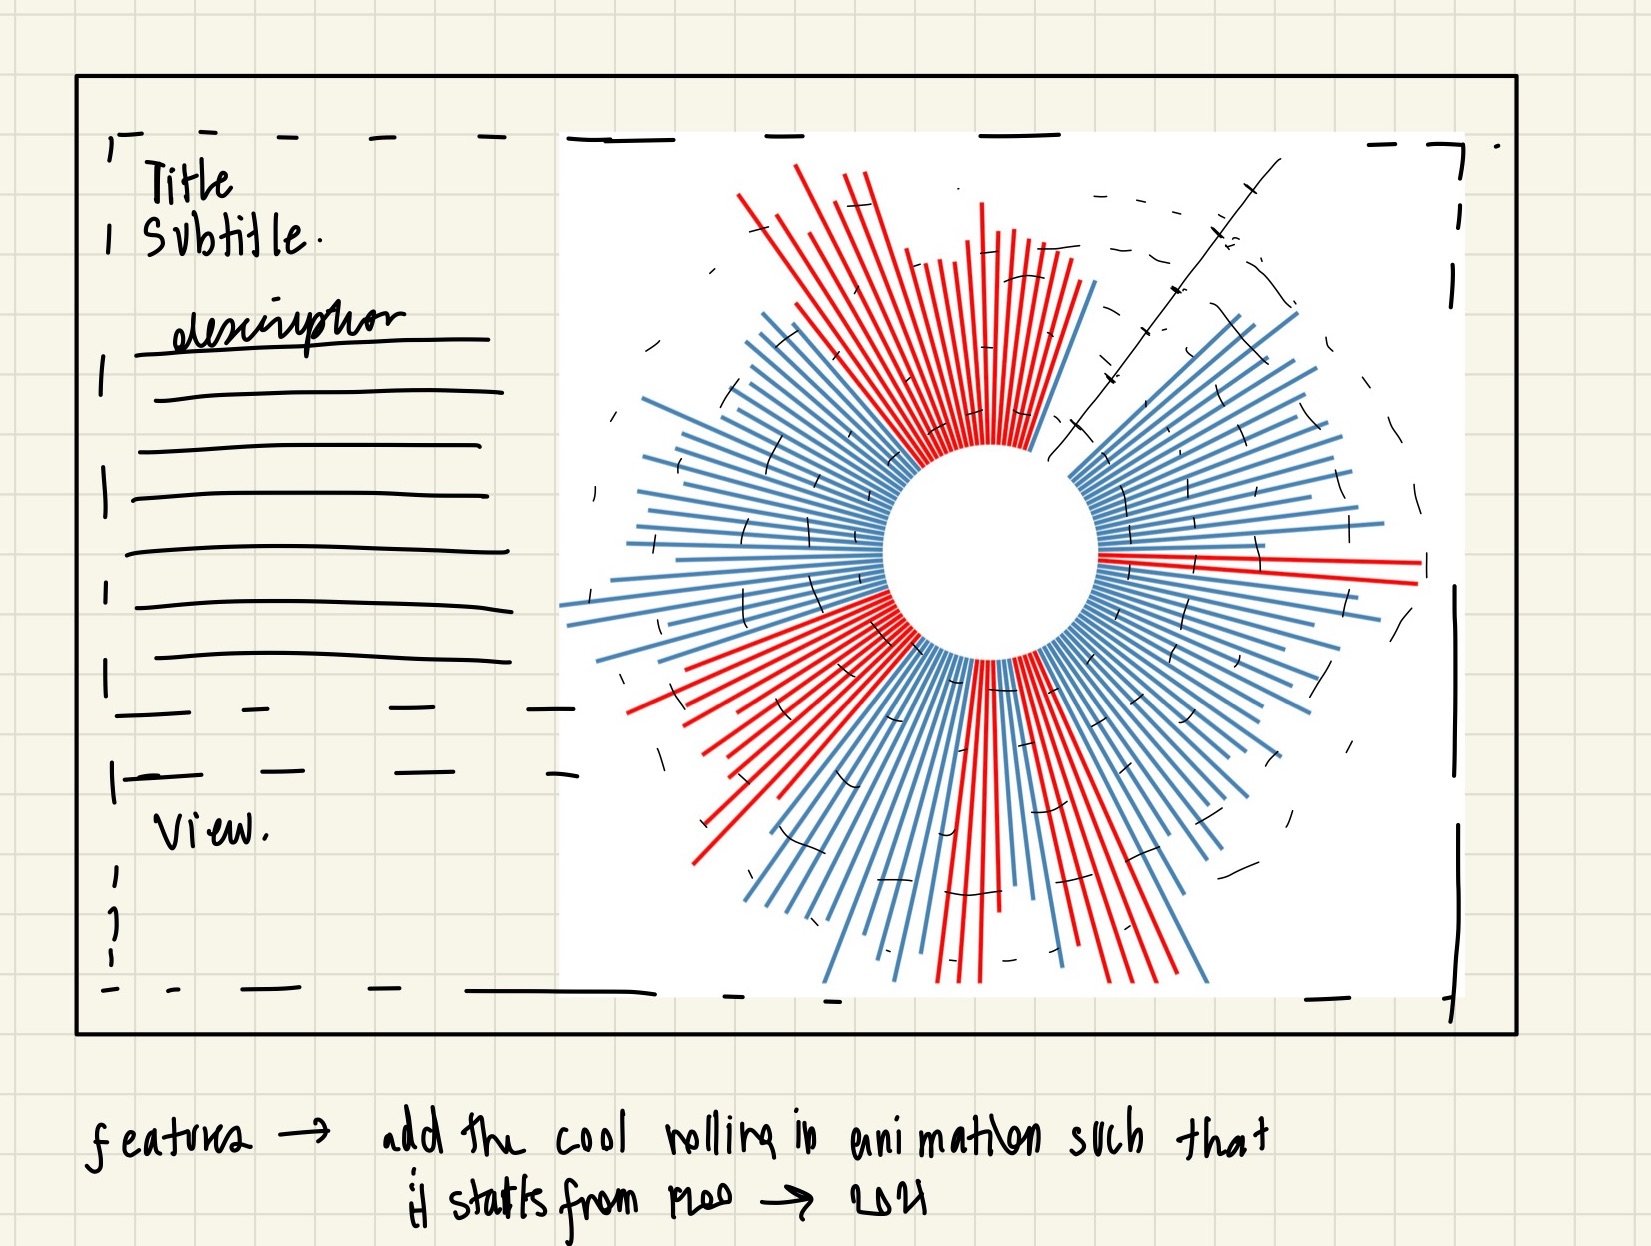 Title
Subtitle.
description
View.
features → add the cool rolling in animation such that
it starts from 1900 → 2021